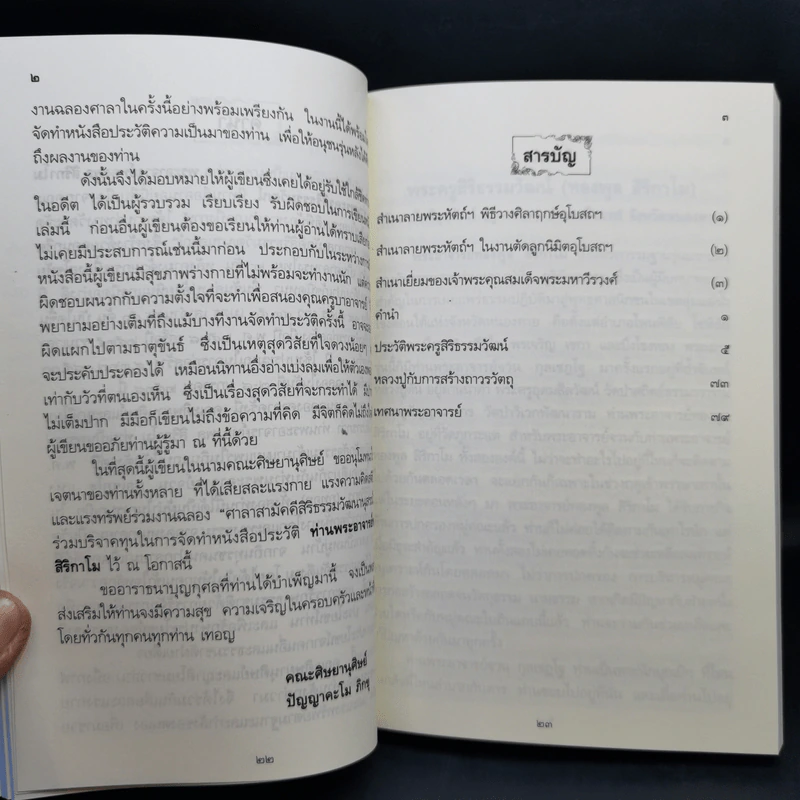 ๒
งานฉลองศาลาในครั้งนี้อย่างพร้อมเพรียงกัน ในงานนี้ได้พร้อมใจ
จัดทำหนังสือประวัติความเป็นมาของท่าน เพื่อให้อนุชนรุ่นหลังได้
ถึงผลงานของท่าน
ดังนั้นจึงได้มอบหมายให้ผู้เขียนซึ่งเคยได้อยู่รับใช้ใกล้ชิด
ในอดีต ได้เป็นผู้รวบรวม เรียบเรียง รับผิดชอบในการเขียน
เล่มนี้ ก่อนอื่นผู้เขียนต้องขอเรียนให้ท่านผู้อ่านได้ทราบ
ไม่เคยมีประสบการณ์เช่นนี้มาก่อน ประกอบกับในระหว่าง
หนังสือนี้ผู้เขียนมีสุขภาพร่างกายที่ไม่พร้อมจะทำงานนัก แต่
ผิดชอบผนวกกับความตั้งใจที่จะทำเพื่อสนองคุณครูบาอาจารย์
พยายามอย่างเต็มที่ถึงแม้บางทีงานจัดทำประวัติครั้งนี้ อาจจะ
ผิดแผกไปตามธาตุขันธ์ ซึ่งเป็นเหตุสุดวิสัยที่ใจดวงน้อยๆ
จะประคับประคองได้ เหมือนนิทานอึ่งอ่างเบ่งลมเพื่อให้ตัวเอง
เท่ากับวัวที่ตนเองเห็น ซึ่งเป็นเรื่องสุดวิสัยที่จะกระทำได้ มี
ไม่เต็มปาก มีมือก็เขียนไม่ถึงข้อความที่คิด มีจิตก็คิดไม่ถึง
ผู้เขียนขออภัยท่านผู้รู้มา ณ ที่นี้ด้วย
ในที่สุดนี้ผู้เขียนในนามคณะศิษยานุศิษย์ ขออนุโมทนา
เจตนาของท่านทั้งหลาย ที่ได้เสียสละแรงกาย แรงความคิด
และแรงทรัพย์ร่วมงานฉลอง "ศาลาสามัคคีสิริธรรมวัฒนานุสรณ์
ร่วมบริจาคทุนในการจัดทำหนังสือประวัติ ท่านพระอาจารย์
สิริกาโม ไว้ ณ โอกาสนี้
ขออาราธนาบุญกุศลที่ท่านได้บำเพ็ญมานี้ จงเป็น
ส่งเสริมให้ท่านจงมีความสุข ความเจริญในครอบครัวและ
โดยทั่วกันทุกคนทุกท่าน เทอญ
คณะศิษยานุศิษย์
ปัญญาคะโม ภิกขุ
๒๒
๓
สารบัญ
สำเนาลายพระหัตถ์ฯ พิธีวางศิลาฤกษ์อุโบสถฯ (๑)
สำเนาลายพระหัตถ์ฯ ในงานตัดลูกนิมิตอุโบสถฯ (๒)
สำเนาเยี่ยมของเจ้าพระคุณสมเด็จพระมหาวีรวงศ์ (๓)
คำนำ ๑
ประวัติพระครูสิริธรรมวัฒน์ ๕
หลวงปู่กับการสร้างถาวรวัตถุ ๗๓
เทศนาพระอาจารย์ ๗๙
๒๓